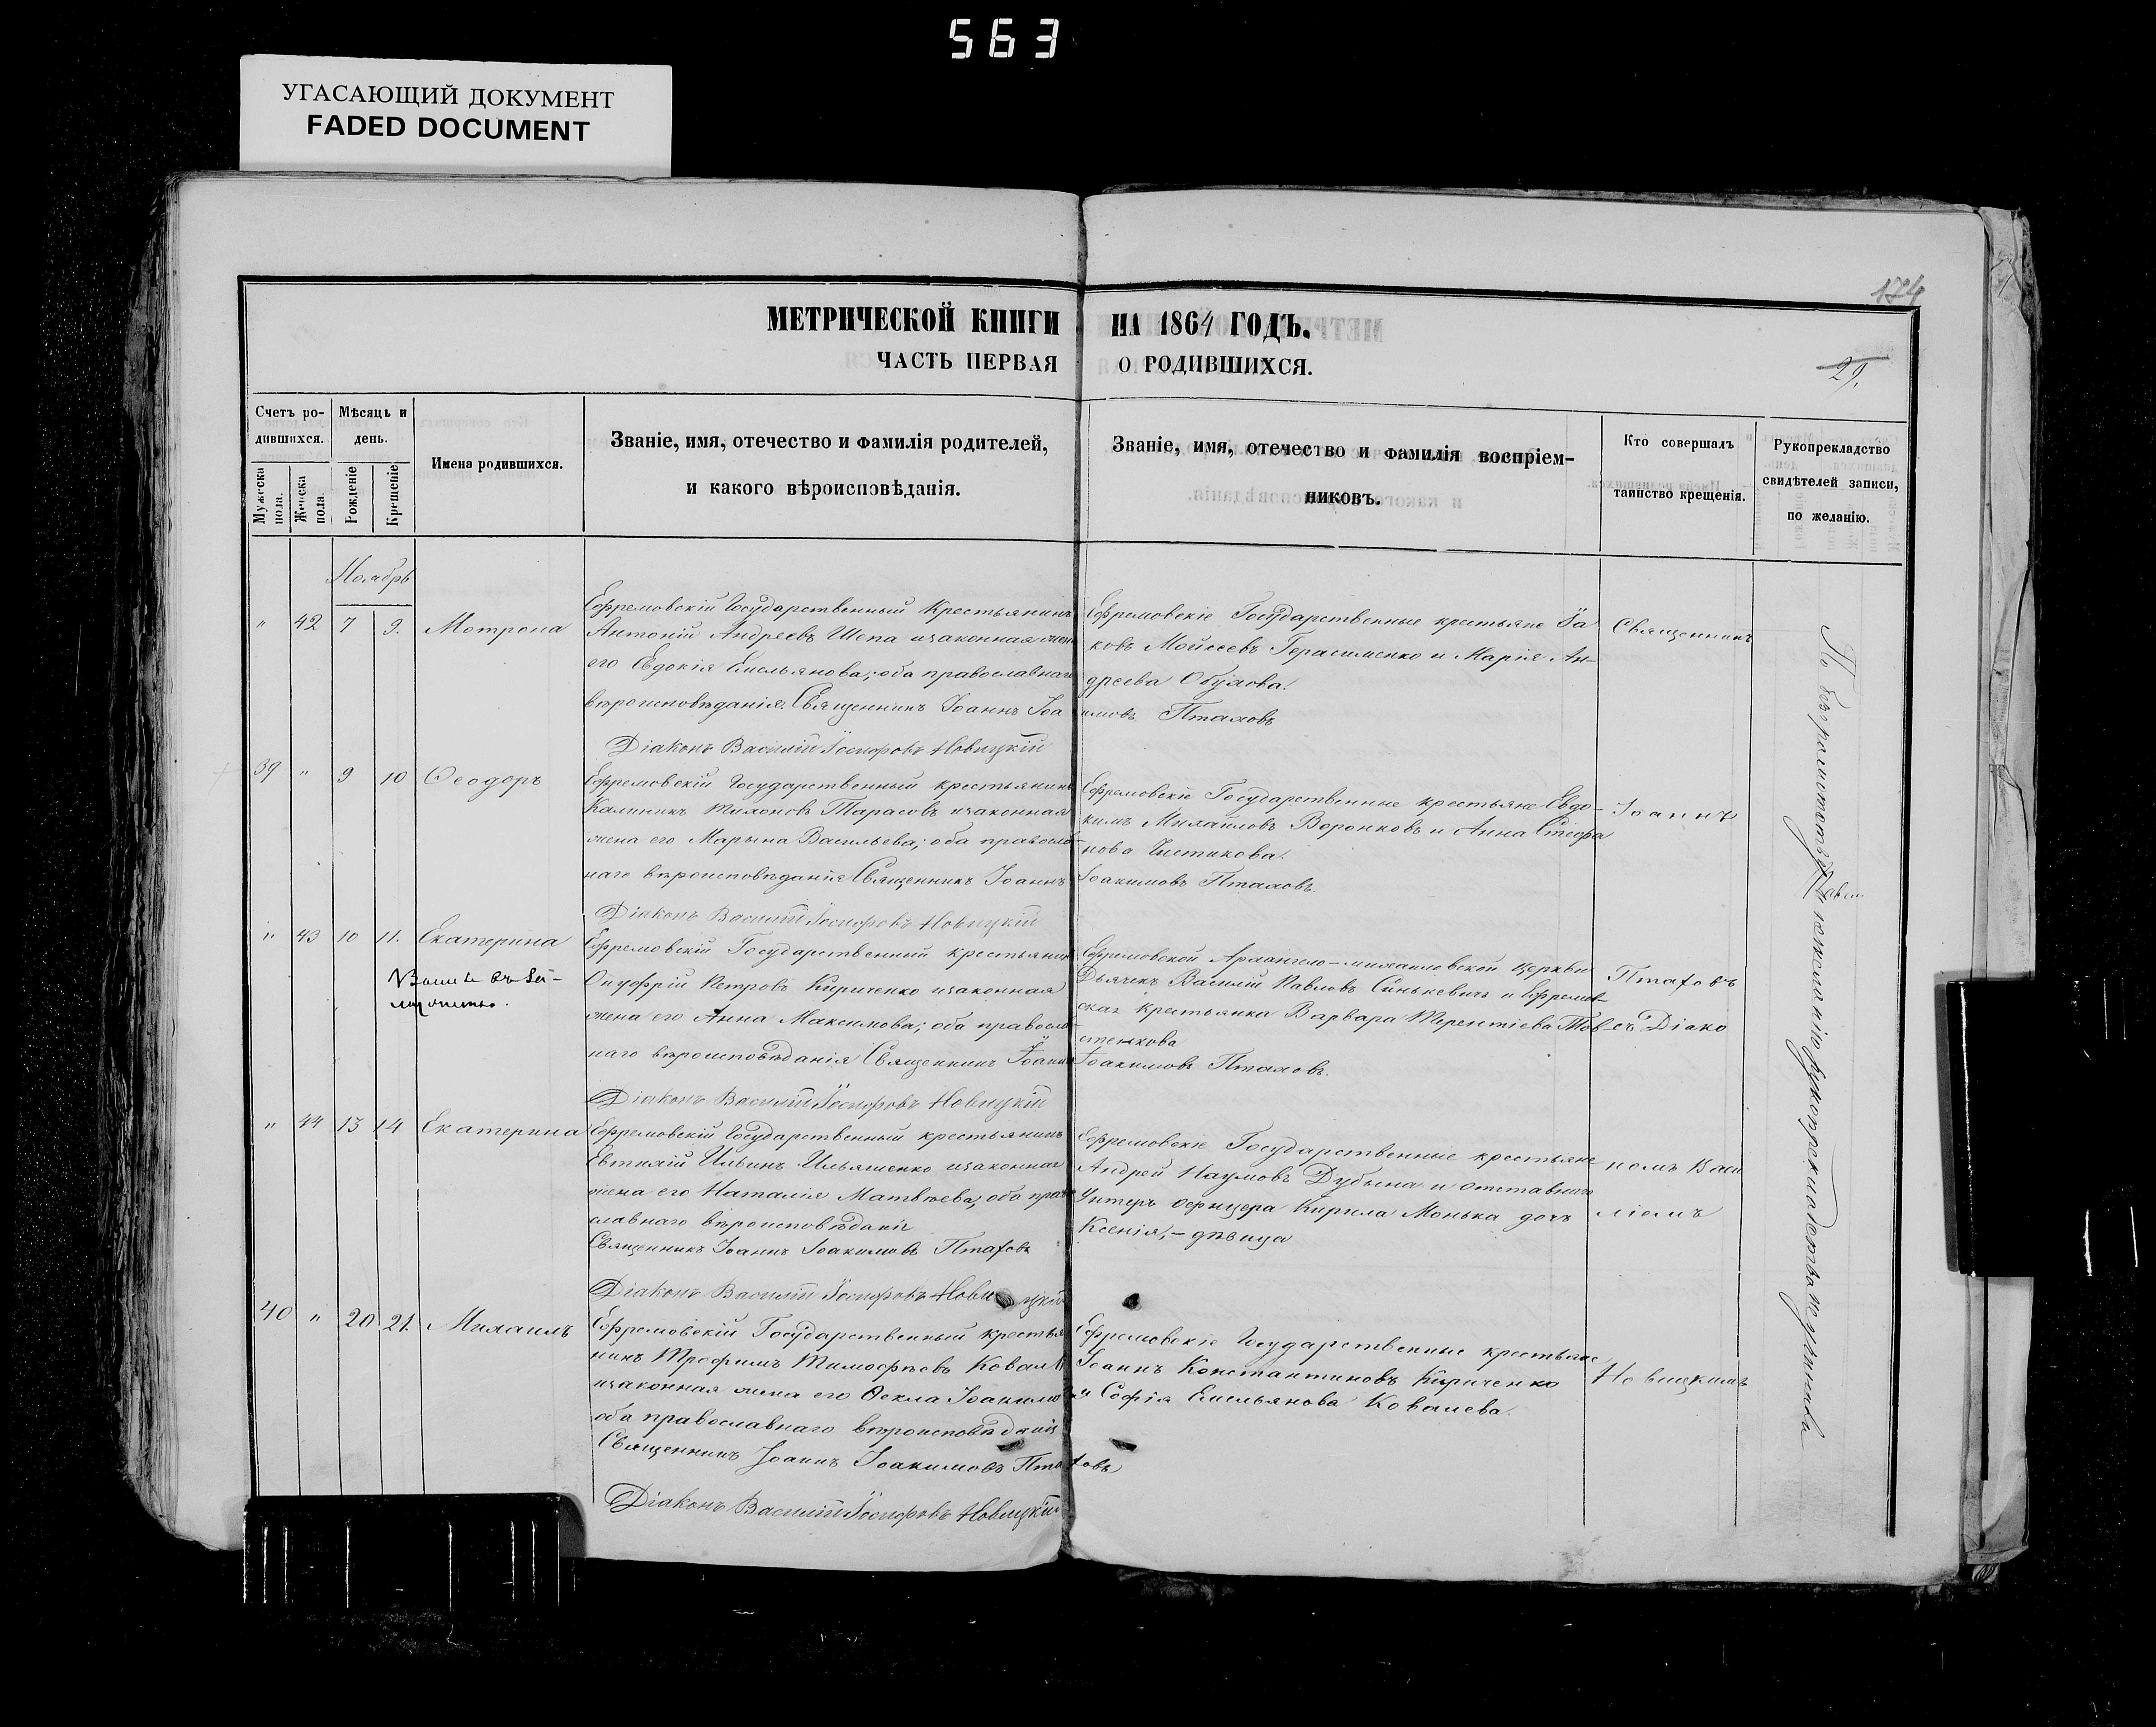 563
УГАСАЮЩИЙ ДОКУМЕНТ
FADED DOCUMENT
174
МЕТРИЧЕСКОЙ КНИГИ НА 1864 ГОДЪ.
ЧАСТЬ ПЕРВАЯ О РОДИВШИХСЯ.
29.
Счетъ ро-
дившихся.
Мужеска пола.
Женска пола.
Мѣсяцъ и
день.
Рожденіе
Крещеніе
Имена родившихся.
Званіе, имя, отечество и фамилія родителей,
и какого вѣроисповѣданія.
Званіе, имя, отечество и фамилія воспріем-
никовъ.
Кто совершалъ
таинство крещенія.
Рукоприкладство
свидѣтелей записи,
по желанію.
Ноябрь
" 42 7 9. Мотрона
Ефремовскій Государственный Крестьянинъ
Антоній Андреевъ Шепа изаконная жен
его Евдокія Емельянова; оба православнаго
вѣроисповѣданія. Священникъ Іоаннъ Іоа
кимовъ Птаховъ
Діаконъ Василій Іосифовъ Новицкій
Ефремовскіе Государственные крестьяне Іа
ковъ Мойсеевъ Герасименко и Марія Ан-
дреева
Священникъ
39 " 9 10 Ѳеодоръ
Ефремовскій Государственный крестьянинъ
Калиникъ Тихоновъ Тарасовъ изаконная
жена его Марына Васильева; оба правосла
наго вѣроисповѣданія Священникъ Іоаннъ
Іоакимовъ Птаховъ.
Діаконъ Василій Іосифовъ Новицкій
Ефремовскіе Государственные крестьяне Евдо-
кимъ Михайловъ Воронковъ и Анна Стефа
нова Чистикова.
Іоаннъ
" 43 10 11. Екатерина
Ефремовскій Государственный крестьянин
Онуфрій Петровъ Кириченко изаконная
жена его Анна Максимова; оба правосла
наго вѣроисповѣданія Священникъ Іоаннъ
Іоакимовъ Птаховъ.
Діаконъ Василій Іосифовъ Новицкій
Ефремовской Архангело-михаиловской церкви
Дьячекъ Василій Павловъ Синькевичъ и Ефремов-
ская крестьянка Варвара Терентіева Тов-
стенкова
Птаховъ
съ Діако
" 44 13 14 Екатерина
Ефремовскій Государственный крестьянинъ
Евтихій Ильинъ Ильяшенко изаконная
жена его Наталія Матвѣева, оба право
славнаго вѣроисповѣданія
Священникъ Іоаннъ Іоакимовъ Птаховъ
Діаконъ Василій Іосифовъ Новицкій
Ефремовскіе Государственные крестьяне
Андрей Наумовъ Дубына и отставнаго
Унтеръ Офицера Кирила Монька дочь
Ксенія, - дѣвица
номъ Васи
ліемъ
40 " 20 21. Михаилъ
Ефремовскій Государственный крестья
нинъ Трофимъ Тимофѣевъ Ковал
изаконная жена его Ѳекла Іоакимо
оба православнаго вѣроисповѣданія
Священникъ Іоаннъ Іоакимовъ Птаховъ
Діаконъ Василій Іосифовъ Новицкій
Ефремовскіе Государственные крестьяне
Іоаннъ Константиновъ Кириченко
и Софія Емельянова Ковалева.
Новицкимъ